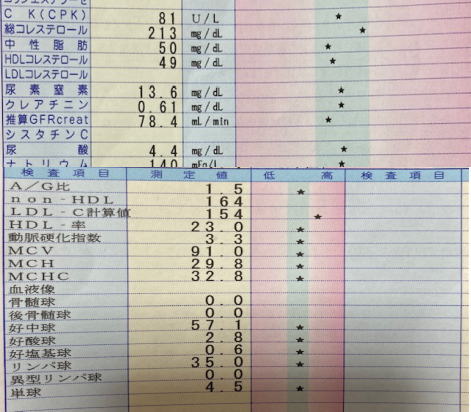 C K(CPK) 81 U/L ★
総コレステロール 213 mg/dL ★
中性脂肪 50 mg/dL ★
HDLコレステロール 49 mg/dL ★
LDLコレステロール
尿素窒素 13.6 mg/dL ★
クレアチニン 0.61 mg/dL ★
推算GFRcreat 78.4 mL/min ★
シスタチンC
尿酸 4.4 mg/dL ★
ナトリウム 140 mEq/L ★
検査項目 測定値 低 高 検査項目
A/G比 1.5 ★
non-HDL 164
LDL-C計算値 154 ★
HDL-率 23.0 ★
動脈硬化指数 3.3 ★
MCV 91.0 ★
MCH 29.8 ★
MCHC 32.8 ★
血液像
骨髄球 0.0
後骨髄球 0.0
好中球 57.1 ★
好酸球 2.8 ★
好塩基球 0.6 ★
リンパ球 35.0 ★
異型リンパ球 0.0
単球 4.5 ★